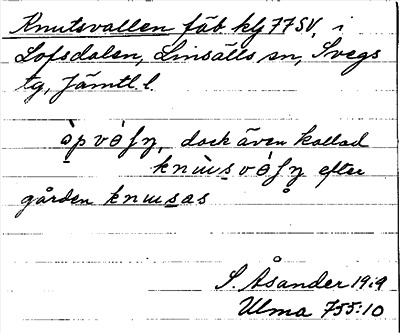 Knutsvallen fäb klj 77 SV, i
Lofsdalen, Linsälls sn, Svegs
tg, Jämtl. l.
dock även kallad
efter
gården
S. Åsander 1919
Ulma 755:10